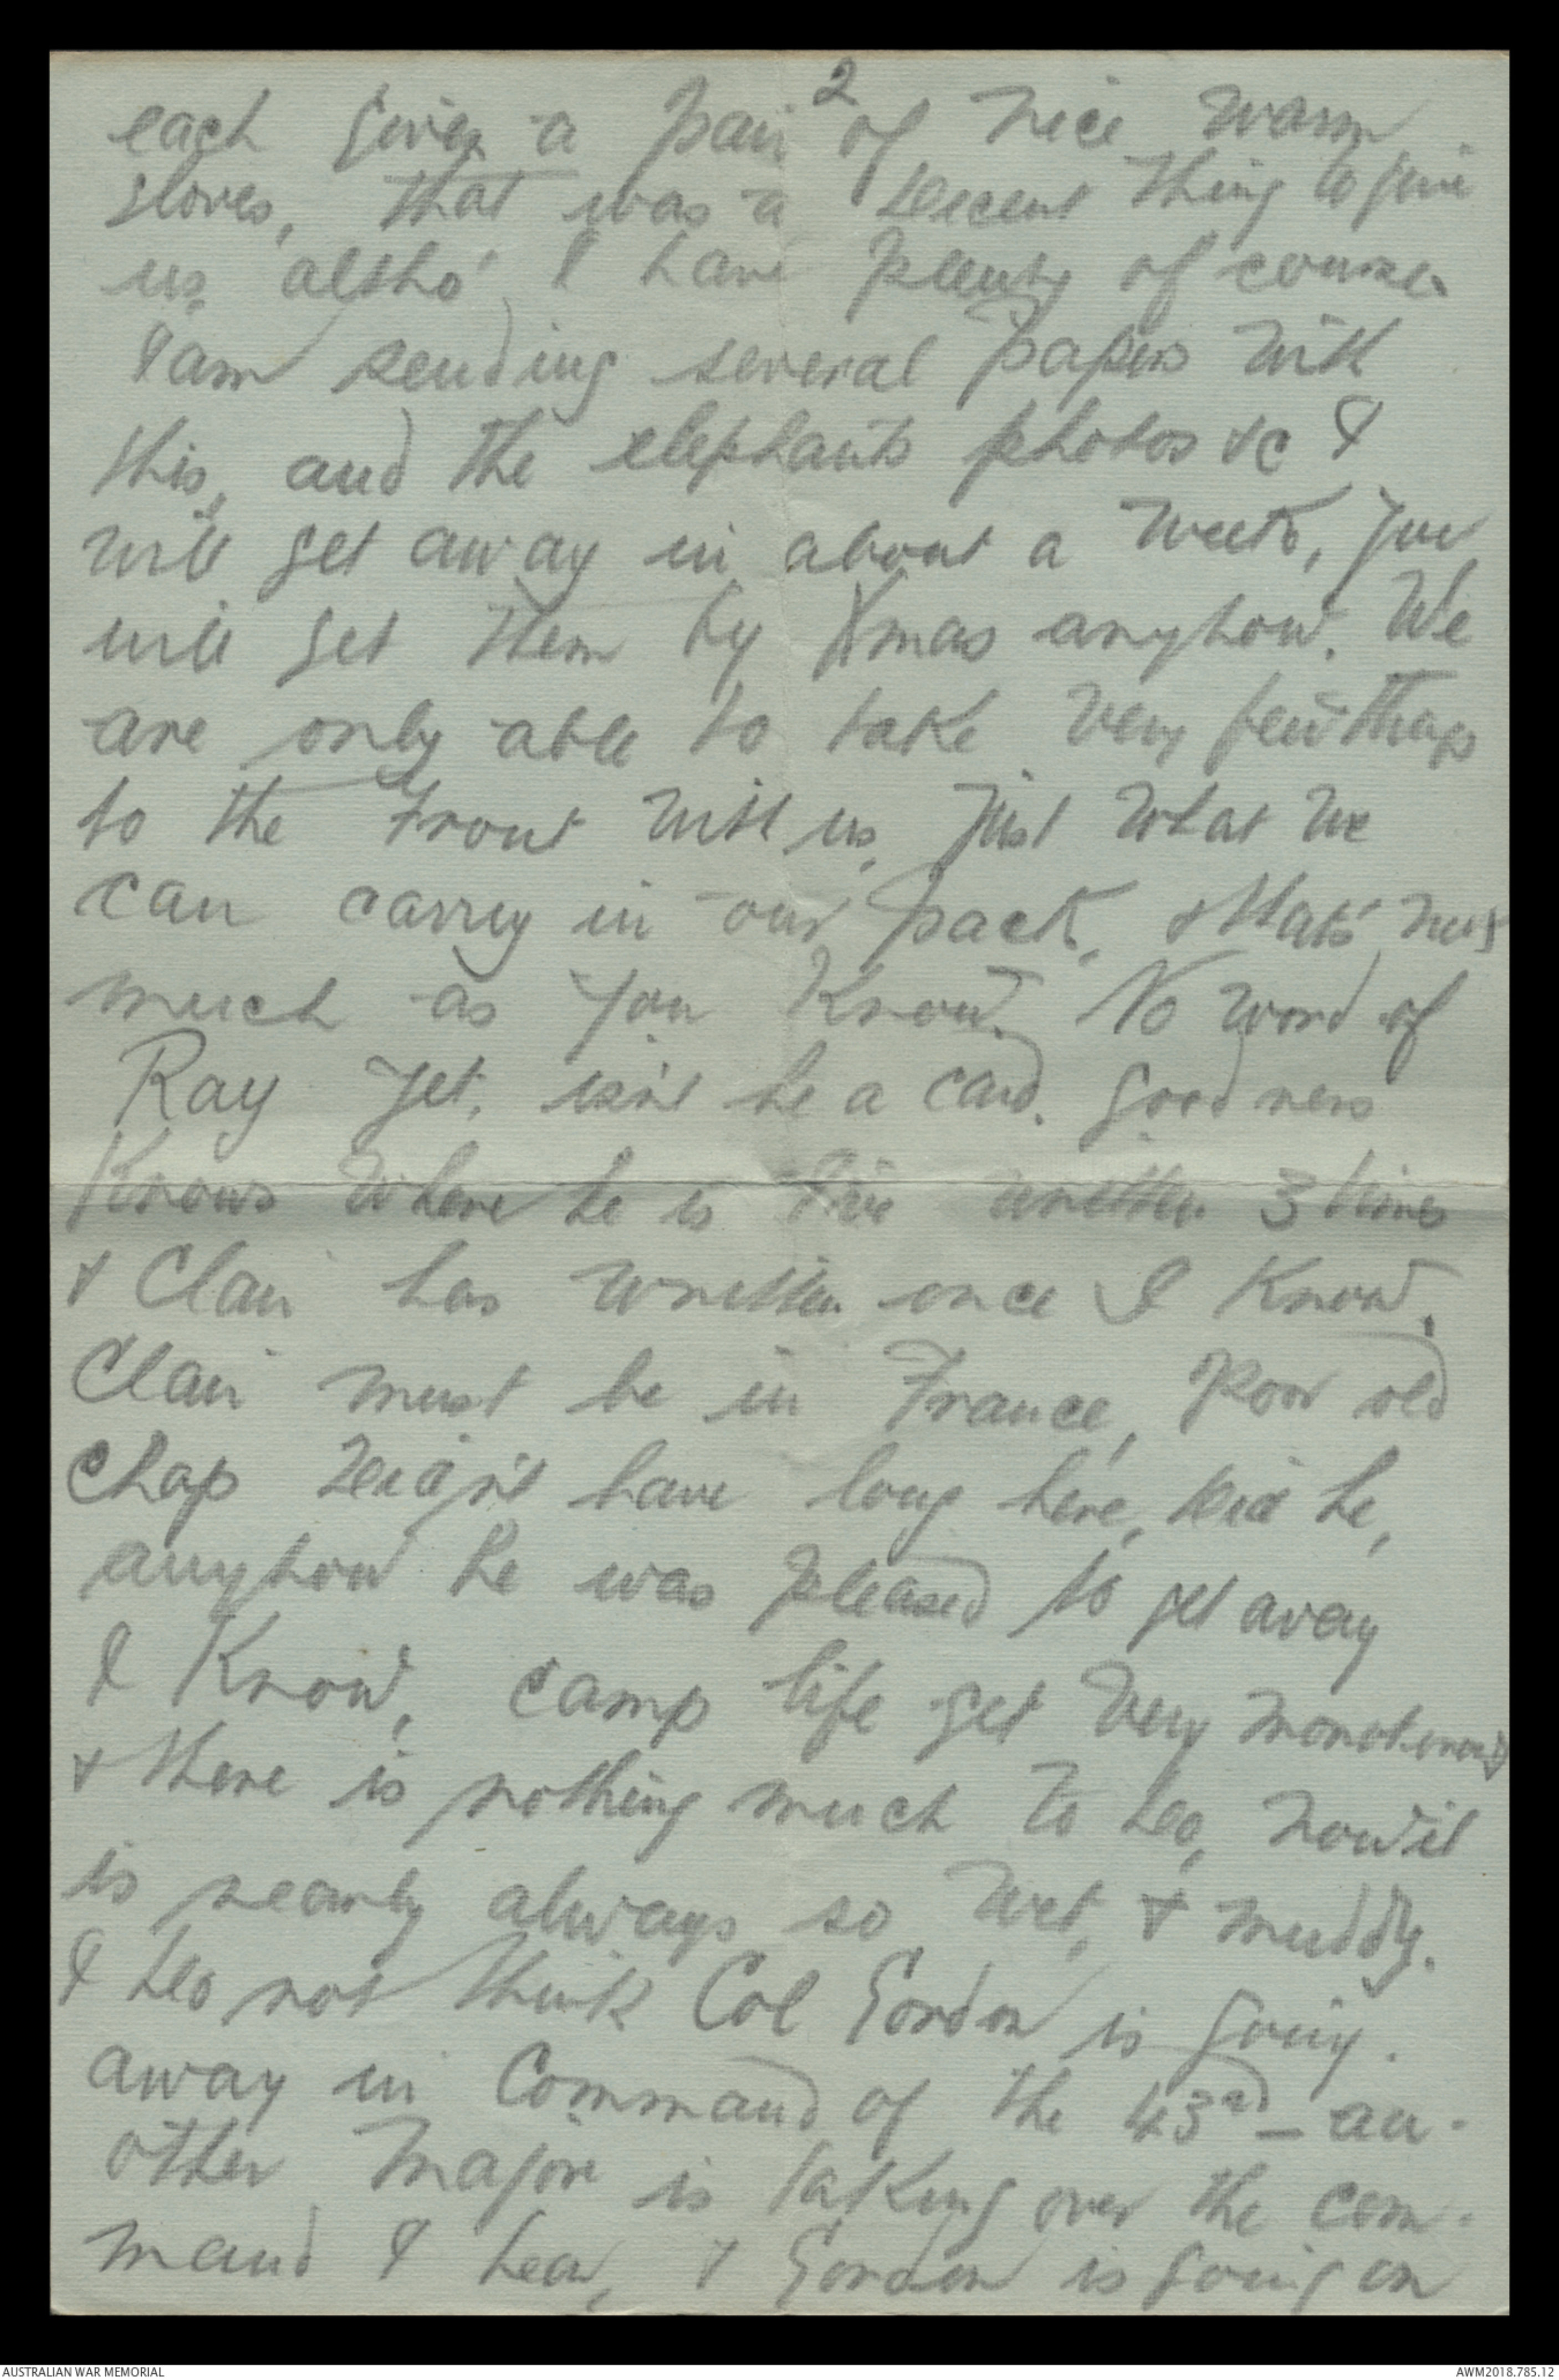 2
each given a pair of nice warm
gloves, that was a decent thing to give
us altho' I have plenty of course
I am sending several papers with
this, and the elephants photos &c I
will get away in about a week, you
will get them by Xmas anyhow. We
are only able to take very few things
to the Front with us, just what we
can carry in our pack, & thats not
much as you know. No word of
Ray yet, isn't he a card. goodness
knows where he is I've written 3 times
& Clair has written once I know.
Clair must be in France, Poor old
chap didn't have long here, did he,
anyhow he was pleased to get away
I know, camp life get very monotonous
& there is nothing much to do, now it
is nearly always so wet, & muddy.
I do not think Col Gordon is going.
away in Command of the 43rd - an-
other Major is taking over the com-
mand I hear, & Gordon is going on
AUSTRALIAN WAR MEMORIAL
AWM2018.785.12